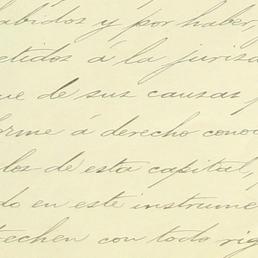 abidos y por haber,
etidos á la jurisd
ue de sus causas p
forme á derecho cono
los de esta capital,
do en este instrume
rechen con todo rig